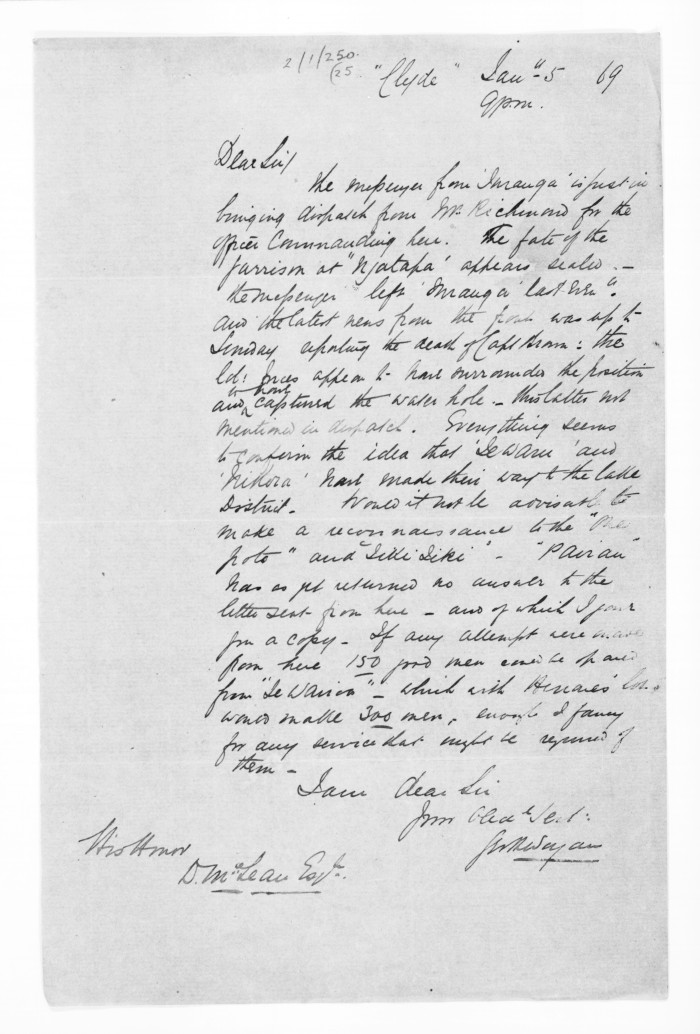 2/1/250.
(25
"Clyde" Jany 5 69
9 p.m.
Dear Sir/
The messenger from 'Turanga' is just in
bringing dispatch from Mr Richmond for the
Officer Commanding here. The fate of the
garrison at "Ngatapa" appears sealed –
the messenger left 'Turanga' last
and the latest news from the front was up to
Sunday reporting the death of Capt Brown: the
Col: forces appear to have surrounded the position
and to have captured the water hole – this latter not
mentioned in dispatch. Everything seems
to confirm the idea that 'Te Waru' and
'Nikora' have made their way to the Lake
District – Would it not be advisable to
make a reconnaissance to the "One
poto" and "Tikki Tiki" – "Paerau"
has as yet returned no answer to the
letter sent from here – and of which I gave
you a copy – If any attempt were made
from here 150 good men could be spared
from "Te Wairoa" – which with
would make 300 men, enough I fancy
for any service that might be required of
them –
I am dear Sir
Your Obedt Servt:
His Honor
D. McLean Esqre.